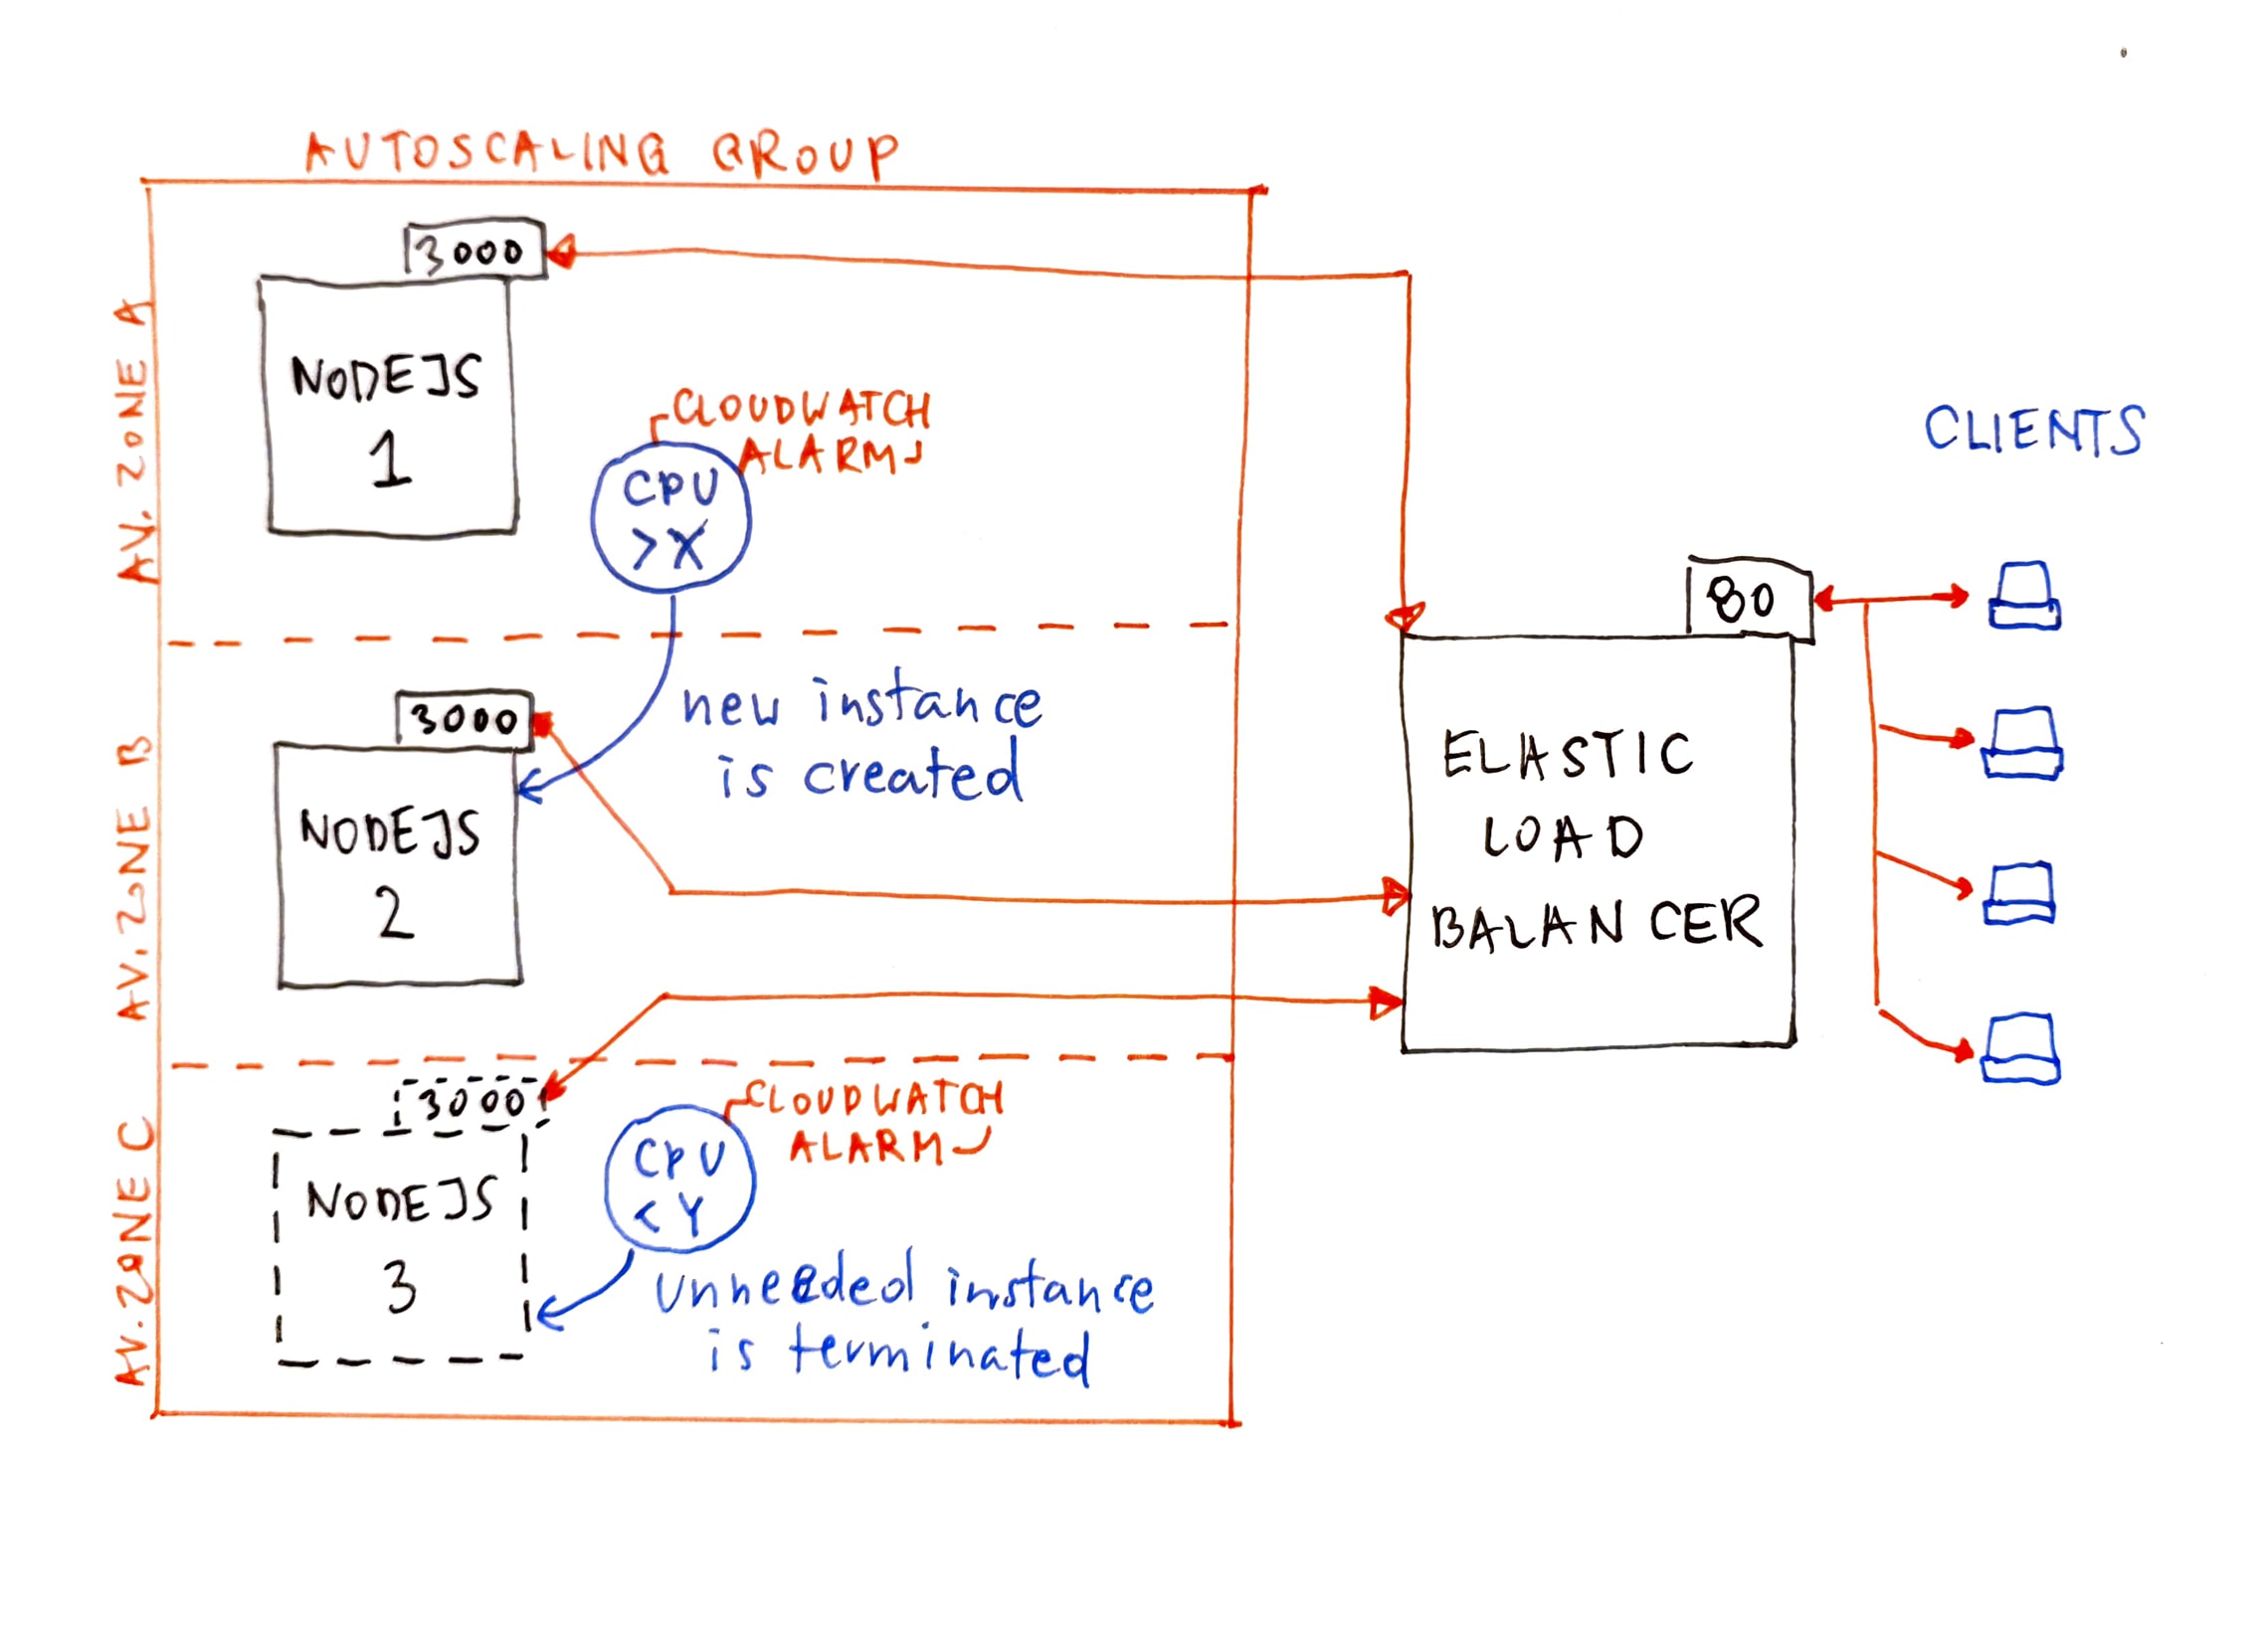 AUTOSCALING GROUP
AV. ZONE A
3000
NODEJS
1
CLOUDWATCH
ALARM
CPU
>X
new instance
is created
AV. ZONE B
3000
NODEJS
2
AV. ZONE C
3000
NODEJS
3
CLOUDWATCH
ALARM
CPU
<Y
unneeded instance
is terminated
80
ELASTIC
LOAD
BALANCER
CLIENTS